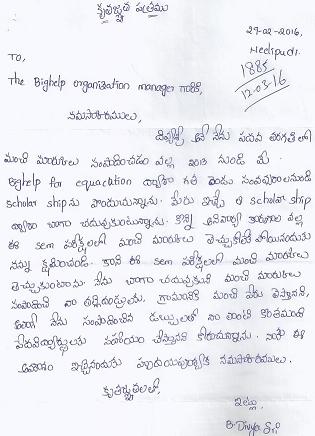 కృతజ్ఞత పత్రము
29-02-2016,
Neelipudi.
To,
1885
12-03-16
The Bighelp organisation manager గారికి,
నమస్కారములు,
దివ్యశ్రీ అనే నేను పదవ తరగతిలో
మంచి మార్కులు సంపాదించడం వల్ల 2013 నుండి మీ
Bighelp for education ద్వారా గత రెండు సంవత్సరాలనుండి
scholar shipను పొందుచున్నాను. మీరు ఇచ్చే ఈ scholar ship
ద్వారా బాగా చదువుకుంటున్నాను. కొన్ని అనివార్య కారణాల వల్ల
ఈ sem పరీక్షలలో మంచి మార్కులు తెచ్చుకోలేక పోయినందుకు
నన్ను క్షమించండి. కాని ఈ sem పరీక్షలలో మంచి మార్కులు
తెచ్చుకుంటాను. నేను బాగా చదువుకుని మంచి మార్కులు
సంపాదించి నా తల్లిదండ్రులకు, గ్రామానికి మంచి పేరు తెస్తానని,
నేను సంపాదించిన డబ్బులలో నా వంతు కొంతమంది
పేదవిద్యార్థులకు సహాయం చేస్తానని కోరుచున్నాను. నాకు ఈ
అవకాశం ఇచ్చినందుకు హృదయపూర్వక నమస్కారములు.
కృతజ్ఞతలతో,
ఇట్లు,
B. Divya Sri